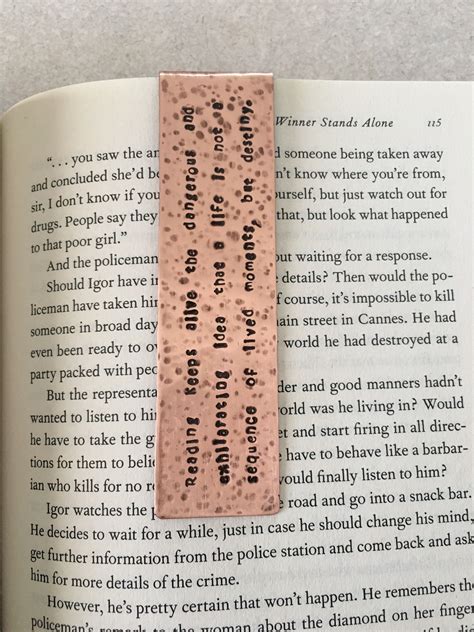 Winner Stands Alone 115
“. . . you saw the an d someone being taken away
and concluded she’d be
sir, I don’t know if you urself, but just watch out for
drugs. People say they that, but look what happened
to that poor girl.”
And the policeman ut waiting for a response.
Should Igor have in details? Then would the po-
liceman have taken him f course, it’s impossible to kill
someone in broad day ain street in Cannes. He had
even been ready to ov world he had destroyed at a
party packed with peo
But the representa der and good manners hadn’t
wanted to listen to him orld was he living in? Would
he have to take the gu t and start firing in all direc-
tions for them to belie have to behave like a barbar-
ian who kills for no re would finally listen to him?
Igor watches the p e road and go into a snack bar.
He decides to wait for a while, just in case he should change his mind,
get further information from the police station and come back and ask
him for more details of the crime.
However, he’s pretty certain that won’t happen. He remembers the
policeman’s remark to the woman about the diamond on her finger
Reading keeps alive the dangerous and
exhilarating idea that a life is not a
sequence of lived moments, but destiny.